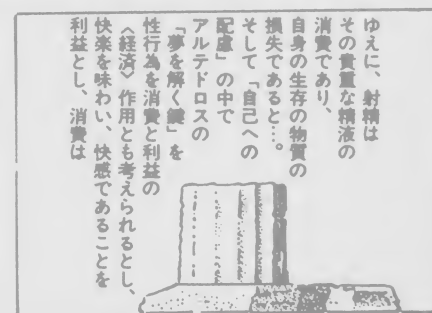 ゆえに、射精は
その貴重な精液の
消費であり、
自身の生存の物質の
損失であると…。
そして「自己への
配慮」の中で
アルテドロスの
「夢を解く鍵」を
性行為を消費と利益の
〈経済〉作用とも考えられるとし、
快楽を味わい、快感であることを
利益とし、消費は